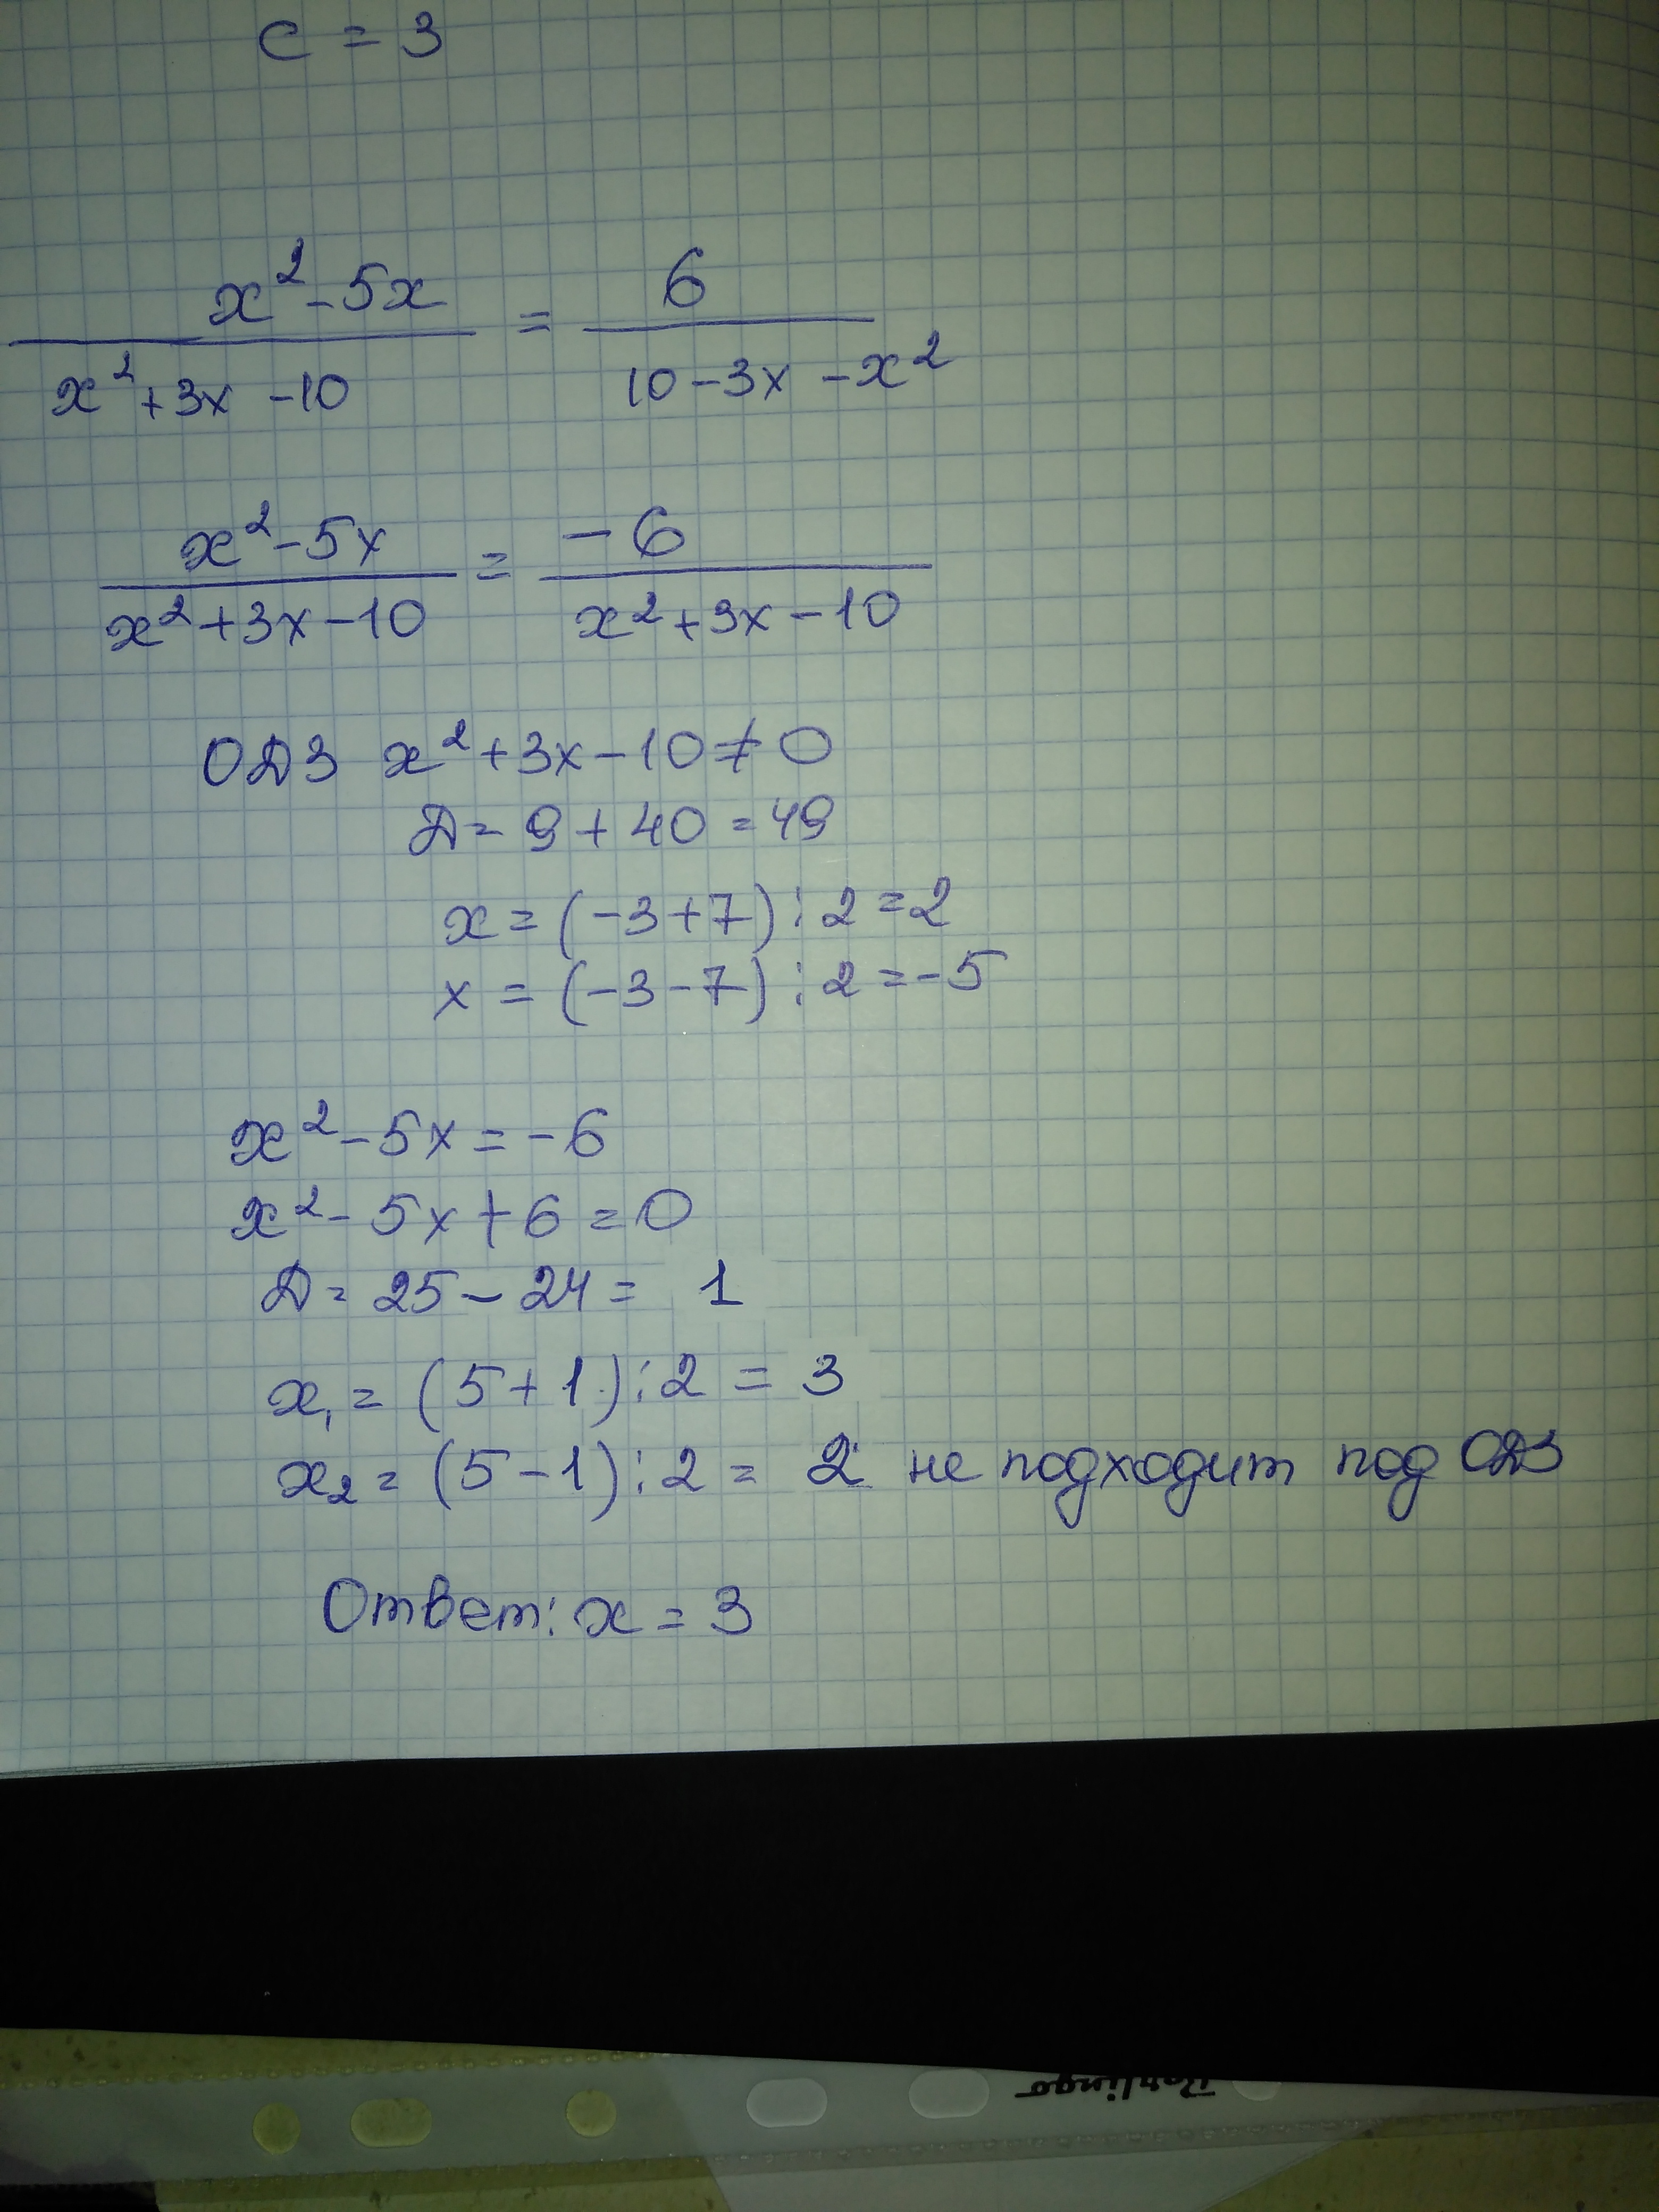 c = 3
x² - 5x / x² + 3x - 10 = 6 / 10 - 3x - x²
x² - 5x / x² + 3x - 10 = -6 / x² + 3x - 10
ОДЗ x² + 3x - 10 ≠ 0
Д = 9 + 40 = 49
x = (-3 + 7) : 2 = 2
x = (-3 - 7) : 2 = -5
x² - 5x = -6
x² - 5x + 6 = 0
Д = 25 - 24 = 1
x₁ = (5 + 1) : 2 = 3
x₂ = (5 - 1) : 2 = 2 не подходит под ОДЗ
Ответ: x = 3